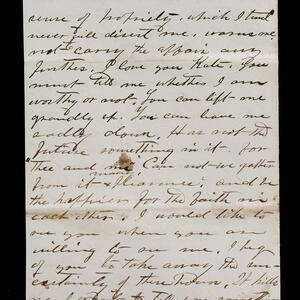 sense of propriety, which I trust
never will desert me, warns me
not to carry the affair any
further. I love you Kate. You
must tell me whether I am
worthy or not. You can lift me
grandly up. You can leave me
sadly down. Has not the
future something in it for
thee and me Can not we gather
many
from it pleasures, and be
the happier for the faith in
each other. I would like to
see you when you are
willing to see me. I beg
of you to take away the un
certainty of these hours. It kills